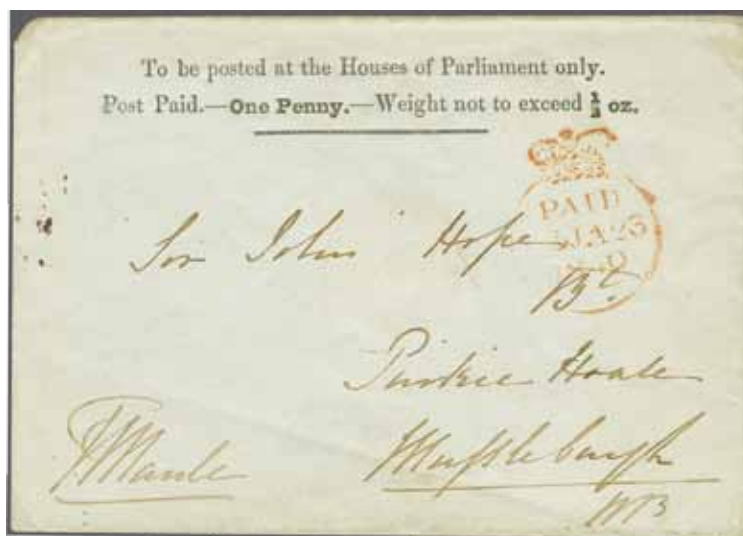 To be posted at the Houses of Parliament only.
Post Paid.—One Penny.—Weight not to exceed ½ oz.
PAID
JA 23
Sir John Hope
Bt.
Pinkie House
Musselburgh
NB
FMaule